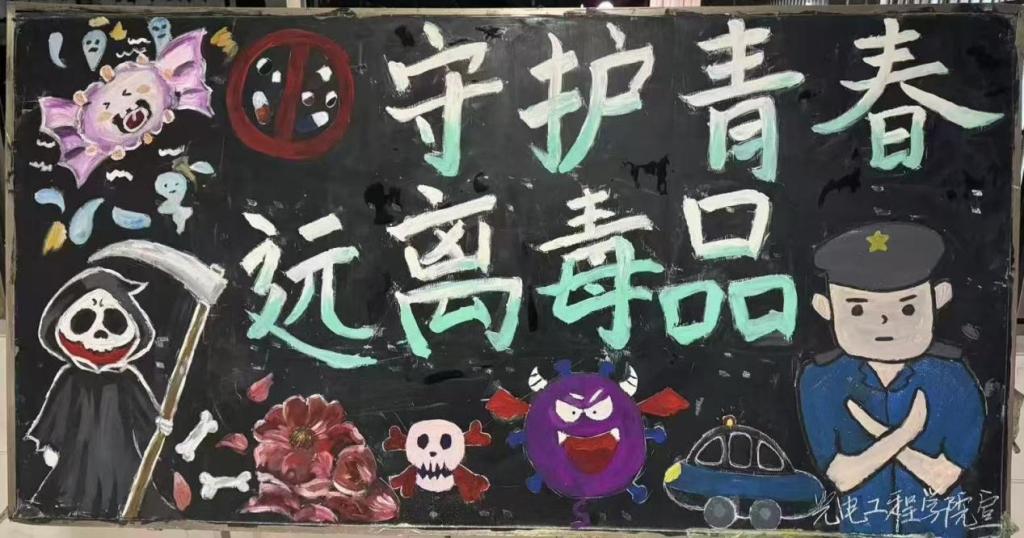 守护青春
远离毒品
光电工程学院宣